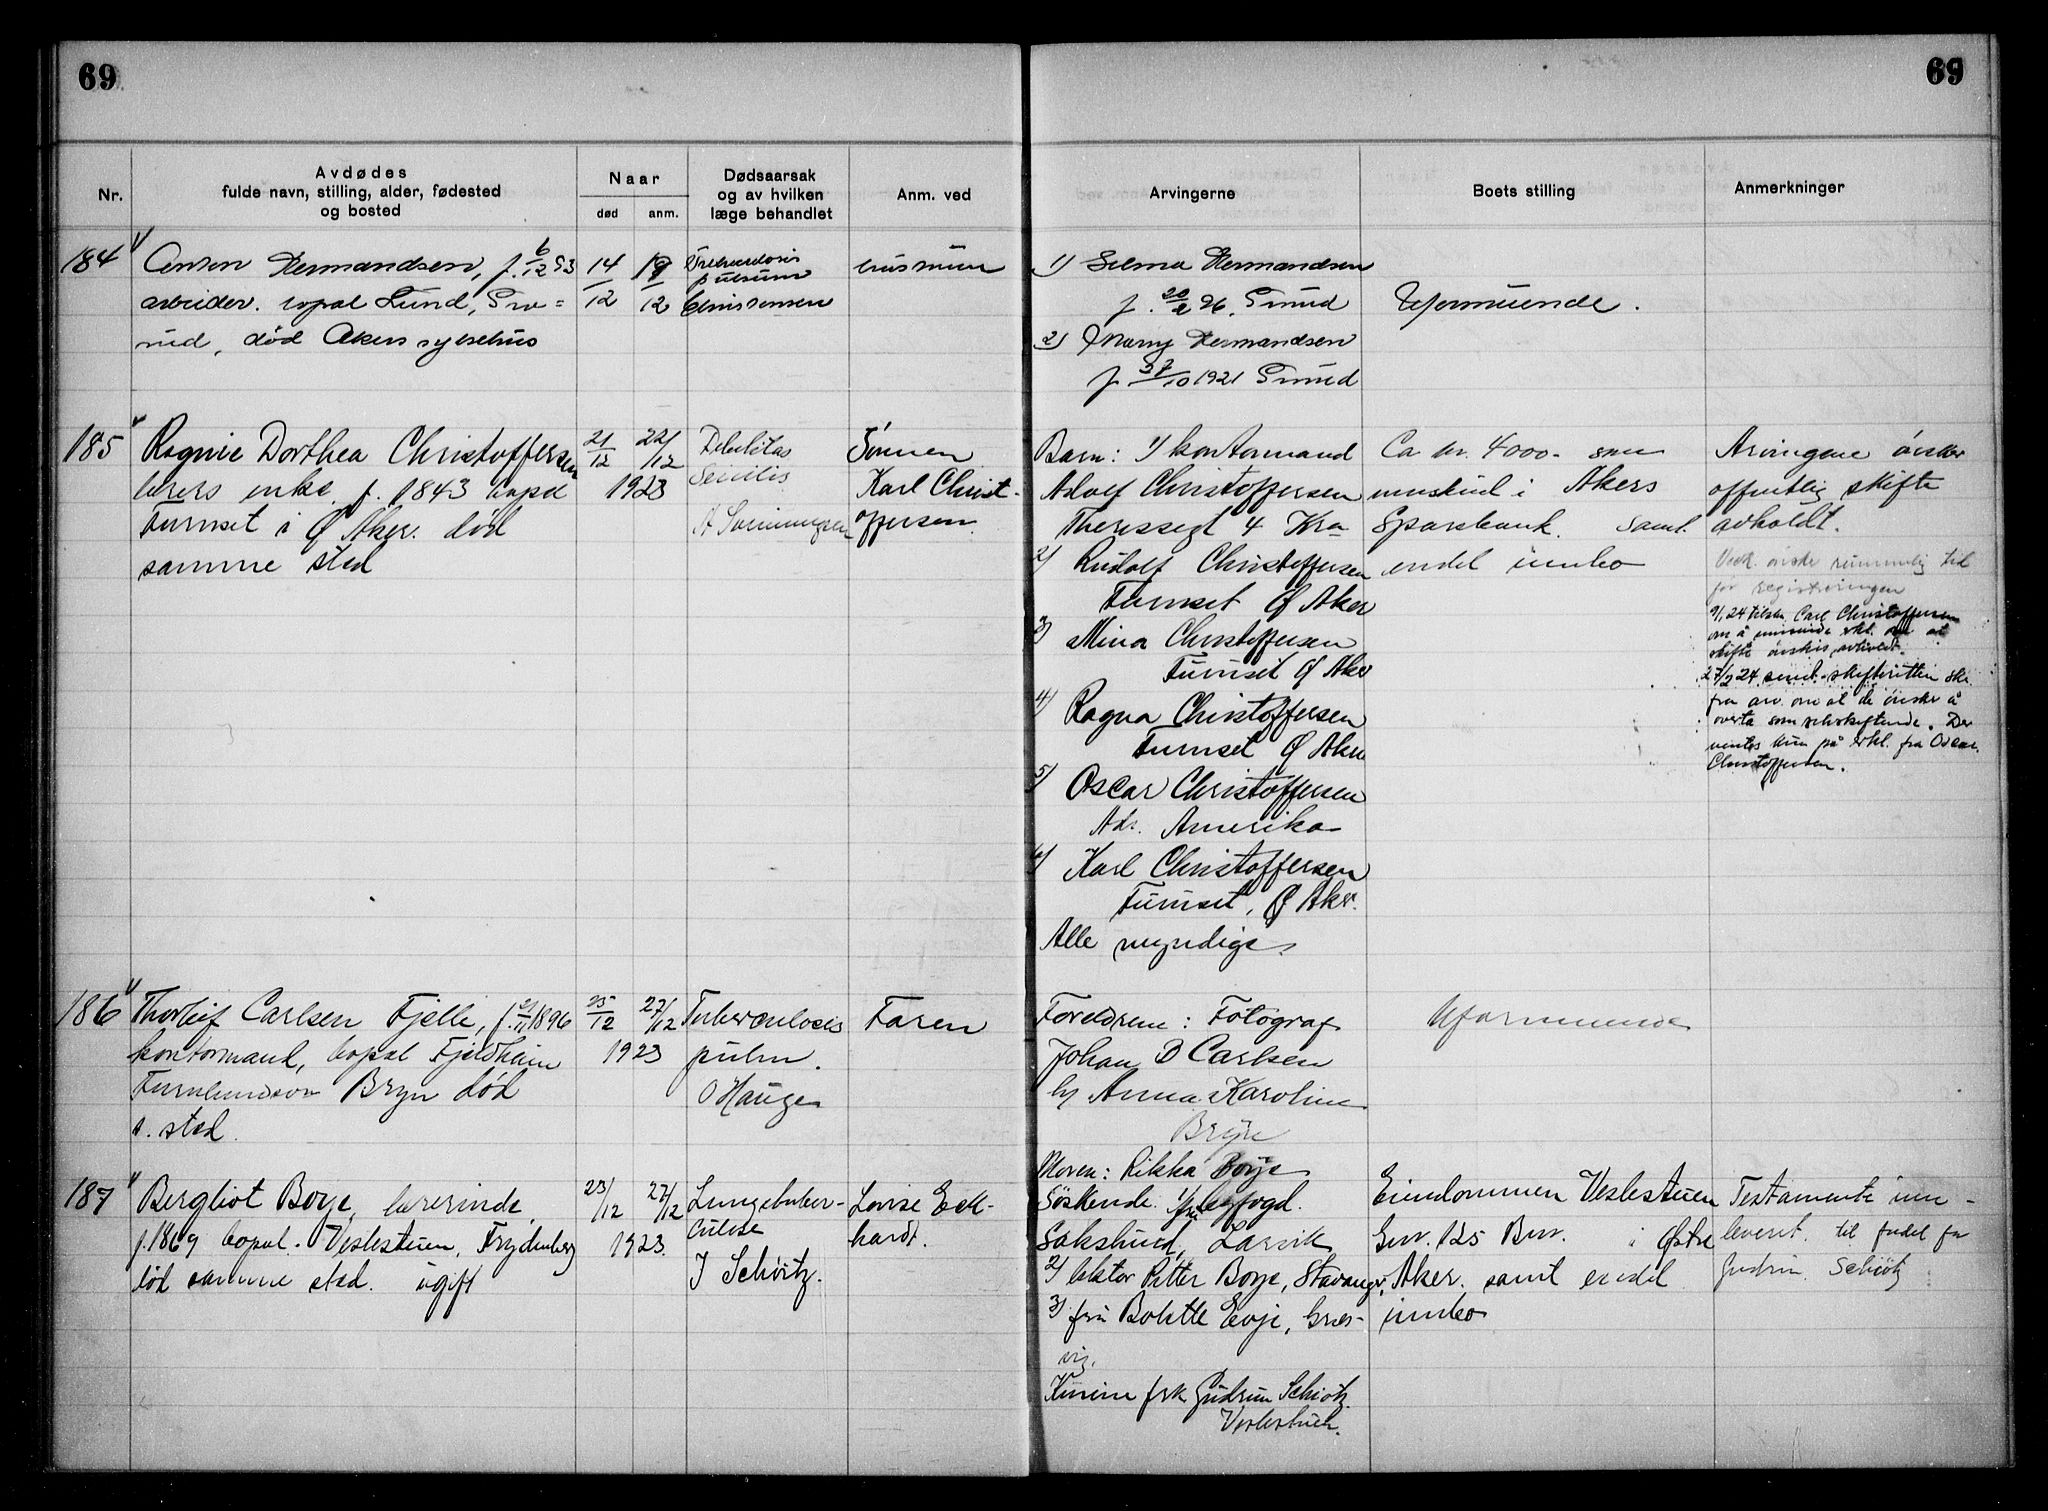 69
69
Nr.
Avdødes
fulde navn, stilling, alder, fødested
og bosted
Naar
død
anm.
Dødsaarsak
og av hvilken
læge behandlet
Anm. ved
Arvingerne
Boets stilling
Anmerkninger
184
Anton Hermandsen, f. 6/12 93
arbeider. bopæl Lund, Gro=
rud, død Akers sykehus
14/12
19/12
Tuberculosis
pulsum
Christensen
hustruen
1) Selma Hermandsen
f. 20/2 96. Grorud
2) Marry Hermandsen
1921 Grorud
Uformuende.
185
Ragnie Dorthea Christoffersen
lærers enke f. 1843 bopæl
Furuset i Ø Aker. død
samme sted
21/12
22/12
1923
Debilitas
Senilis
Sønnen
Karl Christ-
offersen
Barn: 1) kontormand
Adolf Christoffersen
Theresesgt 4 Kra
2) Rudolf Christoffersen
Furuset Ø Aker
3) Mina Christoffersen
Furuset Ø Aker
4) Ragna Christoffersen
Furuset Ø Aker
5) Oscar Christoffersen
Adr. Amerika
6) Karl Christoffersen
Furuset, Ø Aker.
Alle myndige.
Ca kr. 4000.- som
innskud i Akers
Sparebank. samt
endel innbo
Arvingene ønsker
offentlig skifte
avholdt.
Vedk. ønsker rummelig tid
før registreringen
9/1 24 tilskr. Carl Christoffersen
om å innsende erkl. om at
skifte ønskes avholdt.
27/2 24 sendt skifteretten skr.
fra arv. om at de ønsker å
overta som selvskiftende. Der
ventes kun på erkl. fra Oscar
Christoffersen.
186
Thorleif Carlsen Fjelle, f. 1896
kontormand, bopæl Fjeldheim
Bryn død
s. sted.
25/12
27/12
1923
Tuberculosis
pulm.
O Hauge
Faren
Foreldrene: Fotograf
Johan B Carlsen
og Anna Karoline
Bryn
Uformuende
187
Bergliot Boye, lærerinde
f. 1869 bopæl. Veslestuen, Frydenberg
død samme sted. ugift
23/12
27/12
1923
Lungetuber-
culose
J Schiøtz.
Lovise Eck-
hardt.
Moren: Rikka Boye
Søskende. 1) byfogd.
Lakshus, Larvik
2) lektor Petter Boye, Stavanger,
3) fru Bolette Evje, Gres-
vig.
Kusine frk Gudrun Schiøtz
Veslestuen.
Eiendommen Veslestuen
Gnr. 125 Bnr. i Østre
Aker. samt endel
innbo
Testamente inn-
leveret. til fordel for
Gudrun Schiøtz